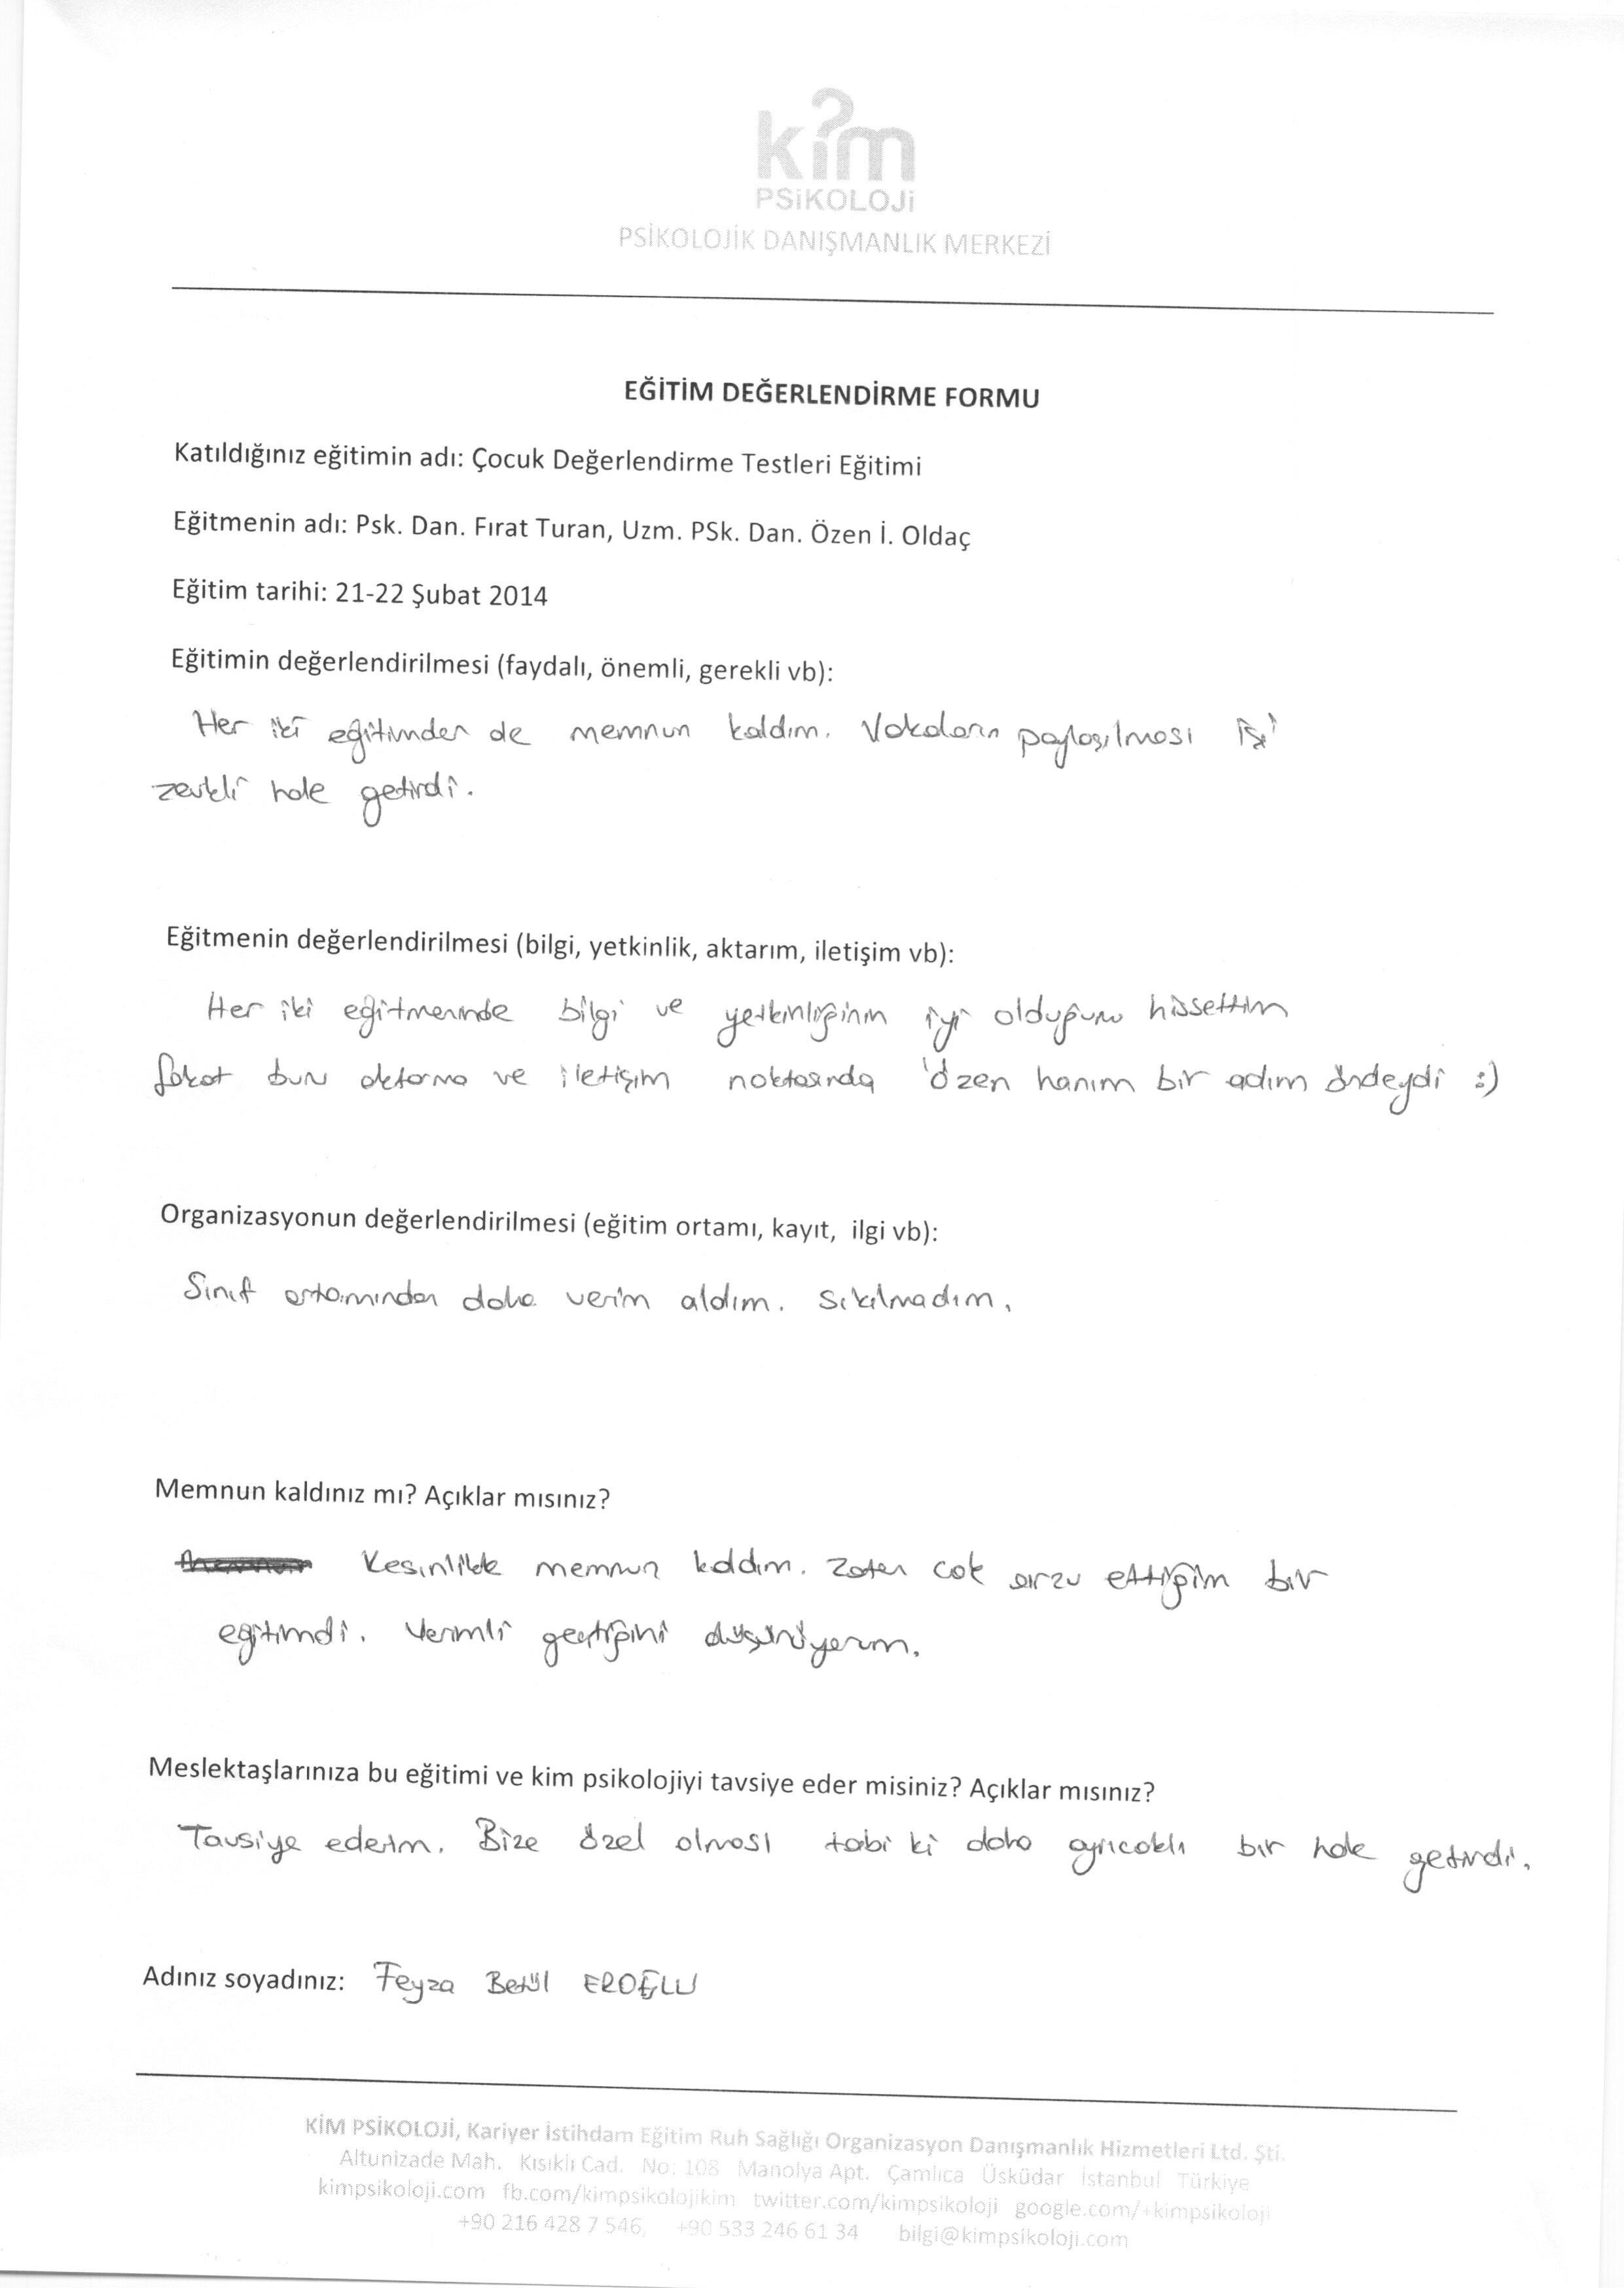 kim
PSiKOLOJi
PSİKOLOJİK DANIŞMANLIK MERKEZİ
EĞİTİM DEĞERLENDİRME FORMU
Katıldığınız eğitimin adı: Çocuk Değerlendirme Testleri Eğitimi
Eğitmenin adı: Psk. Dan. Fırat Turan, Uzm. PSk. Dan. Özen İ. Oldaç
Eğitim tarihi: 21-22 Şubat 2014
Eğitimin değerlendirilmesi (faydalı, önemli, gerekli vb):
Her iki eğitimden de memnun kaldım. Vakaların paylaşılması işi
zevkli hale getirdi.
Eğitmenin değerlendirilmesi (bilgi, yetkinlik, aktarım, iletişim vb):
Her iki eğitmeninde bilgi ve yetkinliğinin iyi olduğunu hissettim
fakat bunu aktarma ve iletişim noktasında Özen hanım bir adım öndeydi :)
Organizasyonun değerlendirilmesi (eğitim ortamı, kayıt, ilgi vb):
Sınıf ortamından daha verim aldım. Sıkılmadım.
Memnun kaldınız mı? Açıklar mısınız?
Kesinlikle memnun kaldım. Zaten cok arzu ettiğim bir
eğitimdi. Verimli geçtiğini düşünüyorum.
Meslektaşlarınıza bu eğitimi ve kim psikolojiyi tavsiye eder misiniz? Açıklar mısınız?
Tavsiye ederim. Bize özel olması tabi ki daha ayrıcaklı bir hale getirdi.
Adınız soyadınız: Feyza Betül EROĞLU
KİM PSİKOLOJİ, Kariyer İstihdam Eğitim Ruh Sağlığı Organizasyon Danışmanlık Hizmetleri Ltd. Şti.
Altunizade Mah. Kısıklı Cad. No: 108 Manolya Apt. Çamlıca Üsküdar İstanbul Türkiye
kimpsikoloji.com fb.com/kimpsikolojikim twitter.com/kimpsikoloji google.com/+kimpsikoloji
+90 216 428 7 546, +90 533 246 61 34 bilgi@kimpsikoloji.com